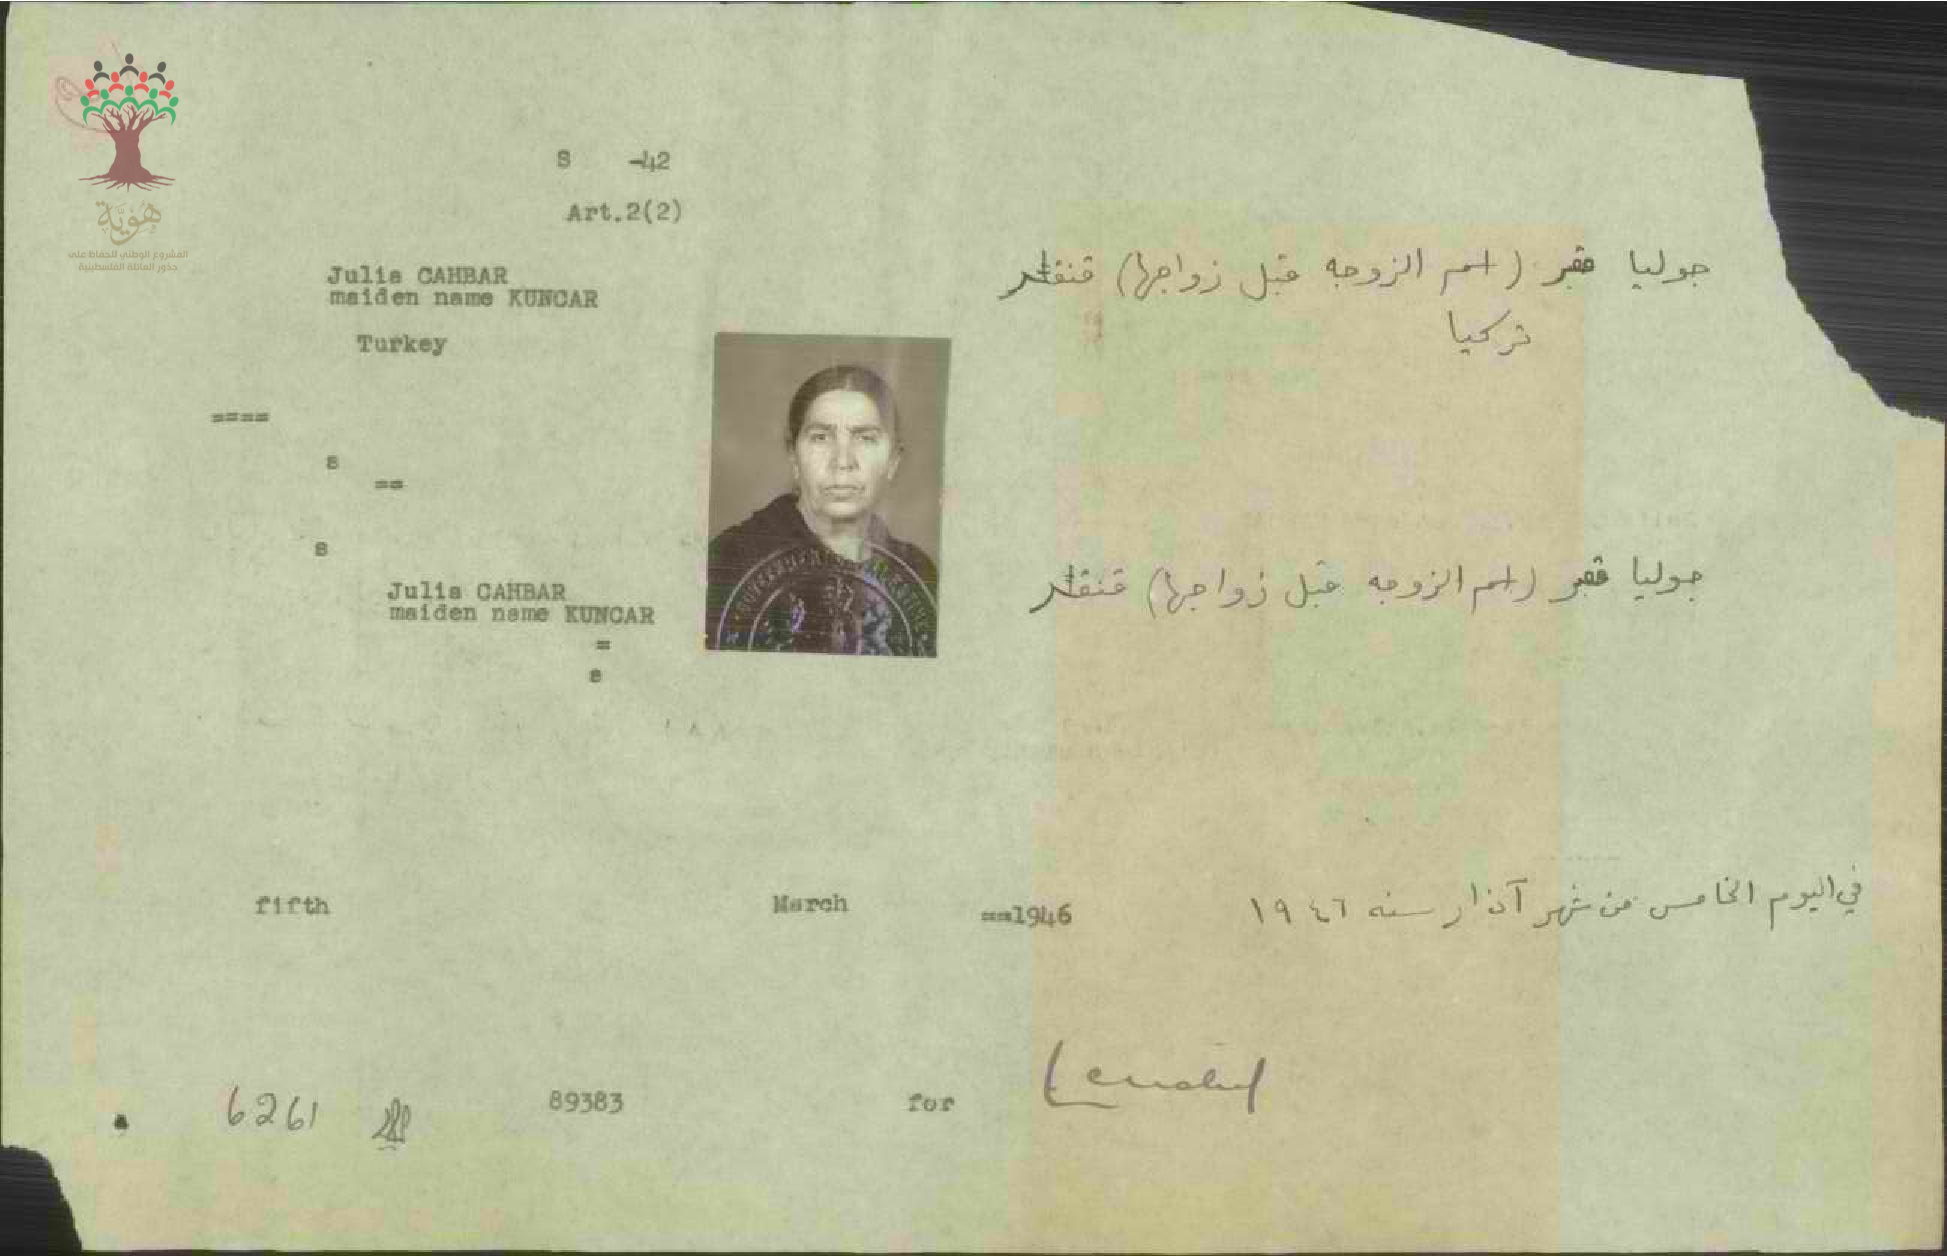 هوية
المشروع الوطني للحفاظ على
جذور العائلة الفلسطينية
S -42
Art.2(2)
Julia CAHBAR
maiden name KUNCAR
Turkey
جوليا (اسم الزوجه قبل زواجها)
تركيا
====
s
==
s
Julia CAHBAR
maiden name KUNCAR
=
s
جوليا (اسم الزوجه قبل زواجها)
fifth March ==1946
في اليوم الخامس من شهر آذار سنه ١٩٤٦
6261 89383 for